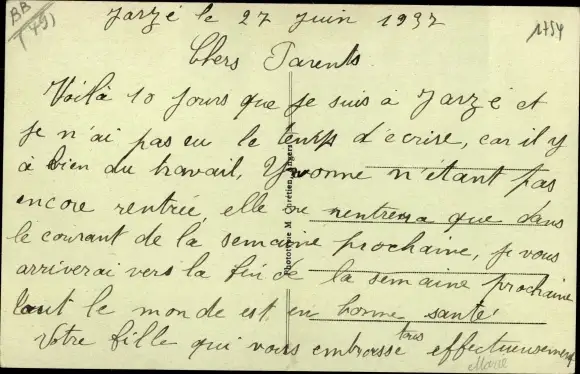 BB
(49)
Jarzé le 27 Juin 1937
1754
Chers Parents
Voilà 10 jours que je suis à Jarzé et
je n'ai pas eu le temps d'écrire, car il y
à bien du travail, Yvonne n'étant pas
encore rentrée, elle ne rentrera que dans
le courant de la semaine prochaine, je vous
arriverai vers la fin de la semaine prochaine
tout le monde est en bonne santé
Votre fille qui vous embrasse tous effectueusement
Marie
Phototypie M. Chrétien, Angers